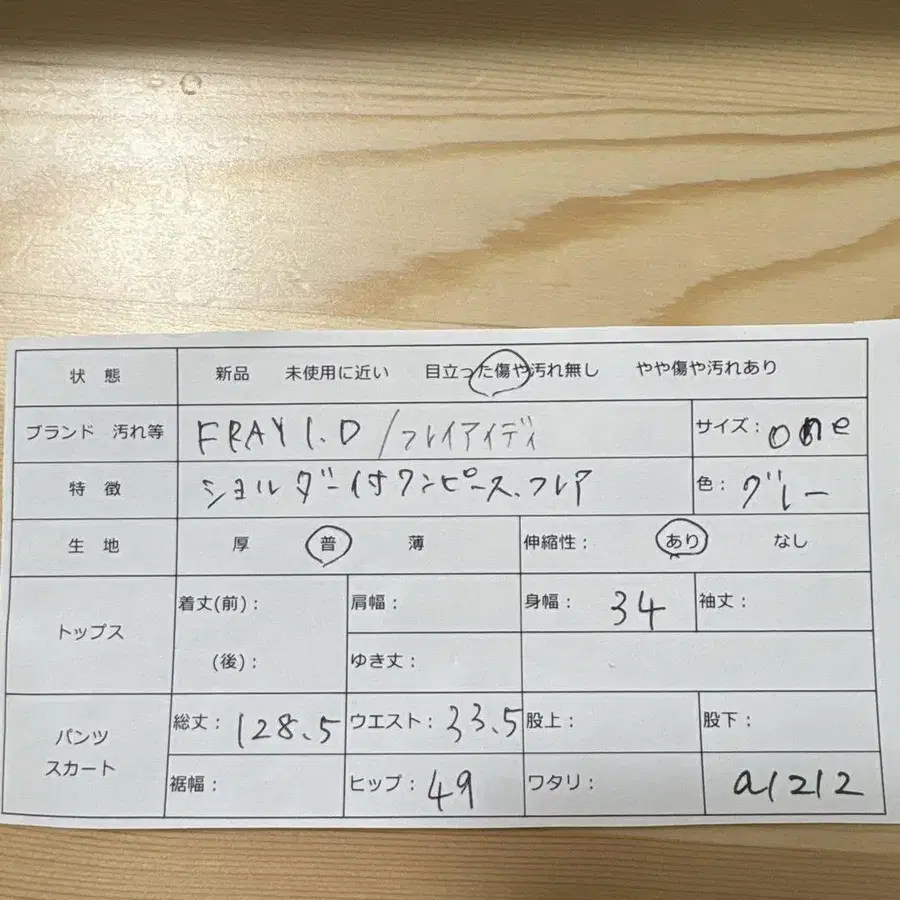 状 態 新品 未使用に近い 目立った傷や汚れ無し やや傷や汚れあり
ブランド 汚れ等 FRAY I.D / フレイアイディ サイズ: one
特 徴 ショルダー付ワンピース、フレア 色: グレー
生 地 厚 普 薄 伸縮性: あり なし
トップス 着丈(前): 肩幅: 身幅: 34 袖丈:
(後): ゆき丈:
パンツ スカート 総丈: 128.5 ウエスト: 33.5 股上: 股下:
裾幅: ヒップ: 49 ワタリ: a1212